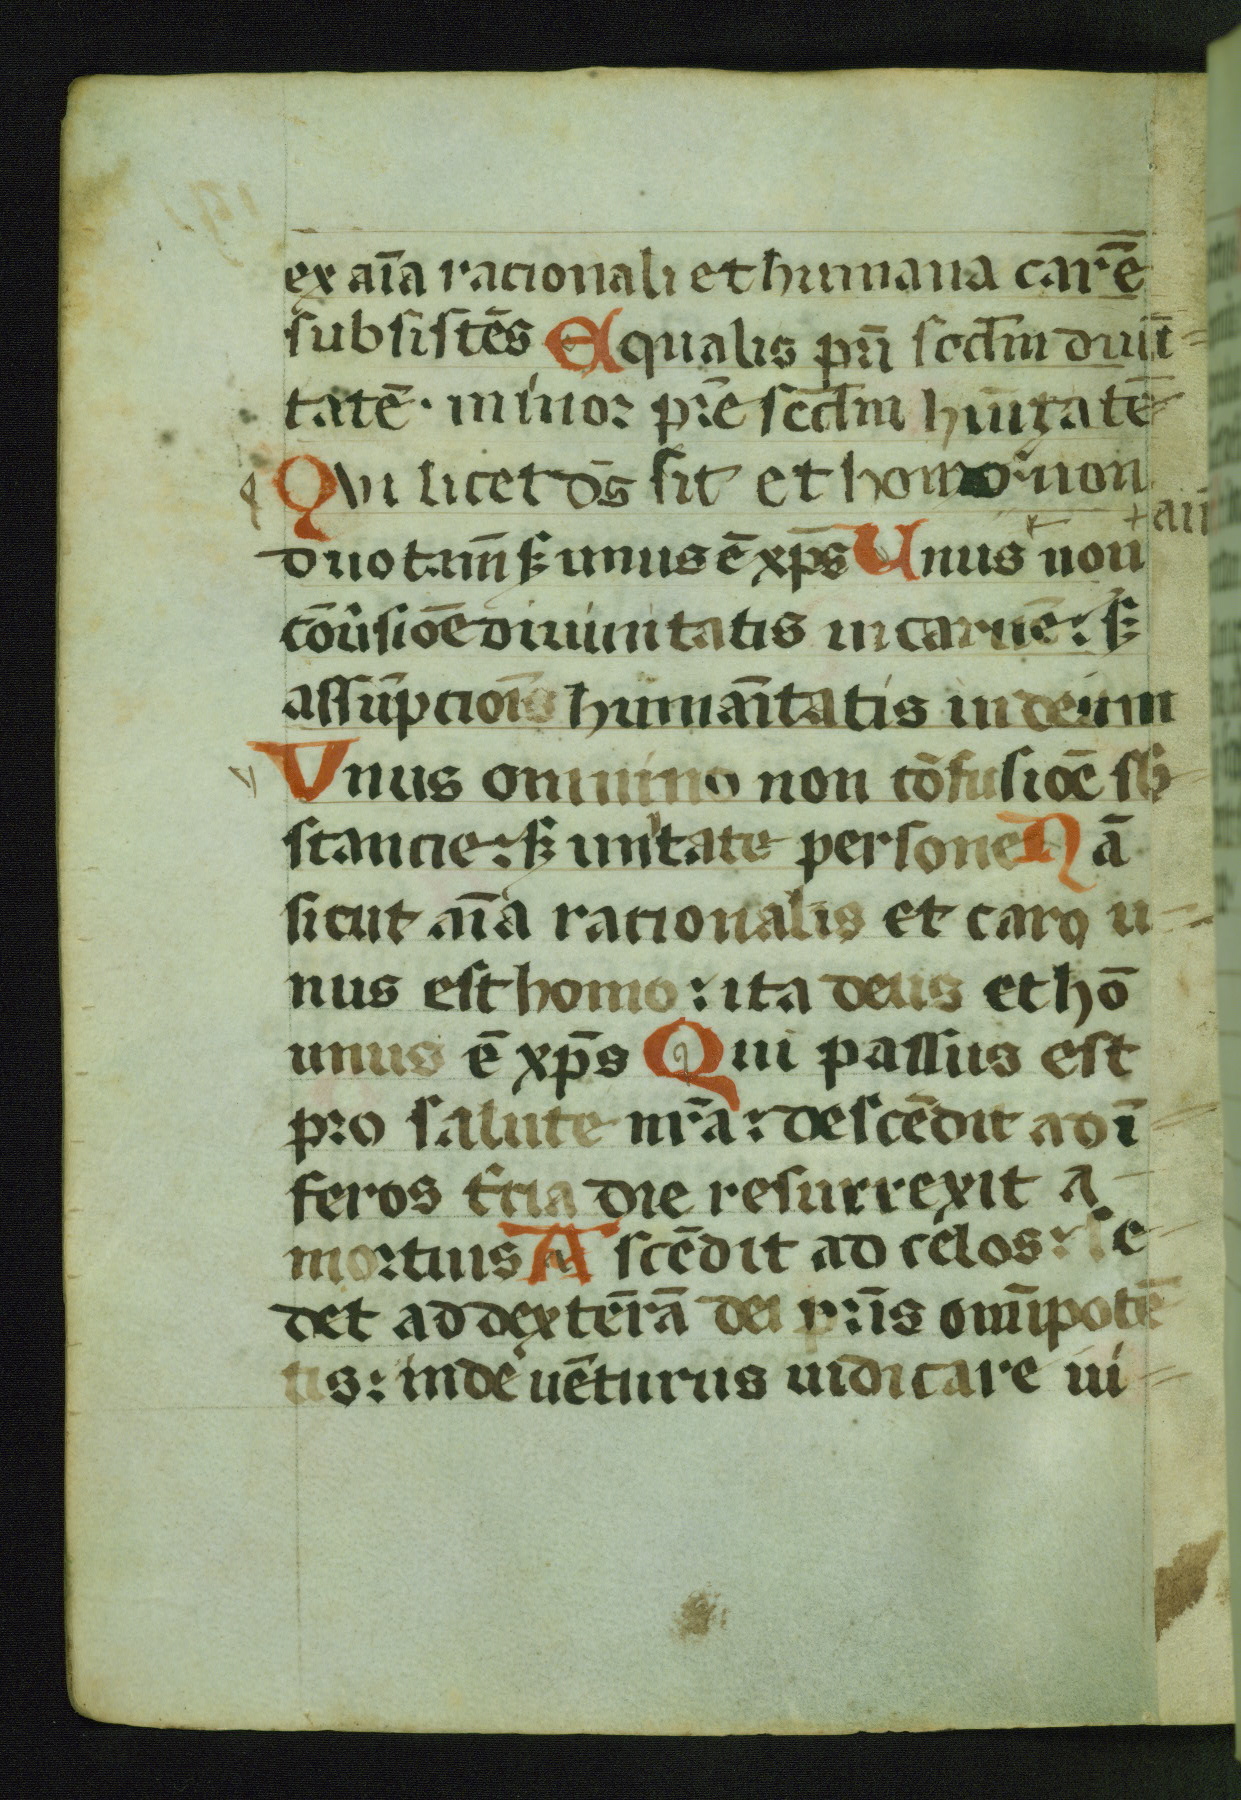 ex aīa racionali et humana carē
subsistēs Equalis pr̄i scd̄m diuīi
tatē· minor pr̄e scd̄m hūītatē
Qui licet d̄s sit et homo: non
duo tam̄ sꝫ unus ē xp̄s Unus + aūt non
cōu̓sioē diuinitatis in carnē: sꝫ
assūpcioīs humāītatis in deum
Vnus omnino non cōfusioē sb̄
stancie: sꝫ unitate persone Nā
sicut aīa racionalis et caro u
nus est homo: ita deus et hō
unus ē xp̄s Qui passus est
pro salute nr̄a: descēdit ad ī
feros t̓cia die resurrexit a
mortuis Ascēdit ad celos: se
det ad dexterā dei pr̄is om̄ipotē
tis: inde uēturus iudicare ui